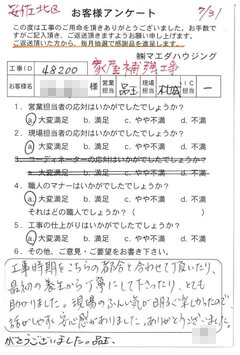 安佐北区 7/31
お客様アンケート
この度は工事のご用命を頂きありがとうございました。お手数で
すがご記入頂き、ご返送頂きますようお願い申し上げます。
ご返送頂いた方から、毎月抽選で感謝品を進呈します。
㈱マエダハウジング
工事ID 48200 家屋補強工事
お客様名 様 営業担当 現場担当
1. 営業担当者の応対はいかがでしたでしょうか？
a.大変満足 b.満足 c.やや不満 d.不満
2. 現場担当者の応対はいかがでしたでしょうか？
a.大変満足 b.満足 c.やや不満 d.不満
3. コーディネーターの応対はいかがでしたでしょうか？
a.大変満足 b.満足 c.やや不満 d.不満
4. 職人のマナーはいかがでしたでしょうか？
a.大変満足 b.満足 c.やや不満 d.不満
それはどの職人でしょうか？（ ）
5. 工事の仕上がりはいかがでしたでしょうか？
a.大変満足 b.満足 c.やや不満 d.不満
6. その他、ご意見・ご要望をお書き下さい。
工事時期をこちらの都合と合わせて頂いたり、
最初の養生から丁寧にして下さったり、とても
助かりました。現場のふんい気が明るく
話がしやすく安心感がありました。ありがとうございました。
がとうございました。